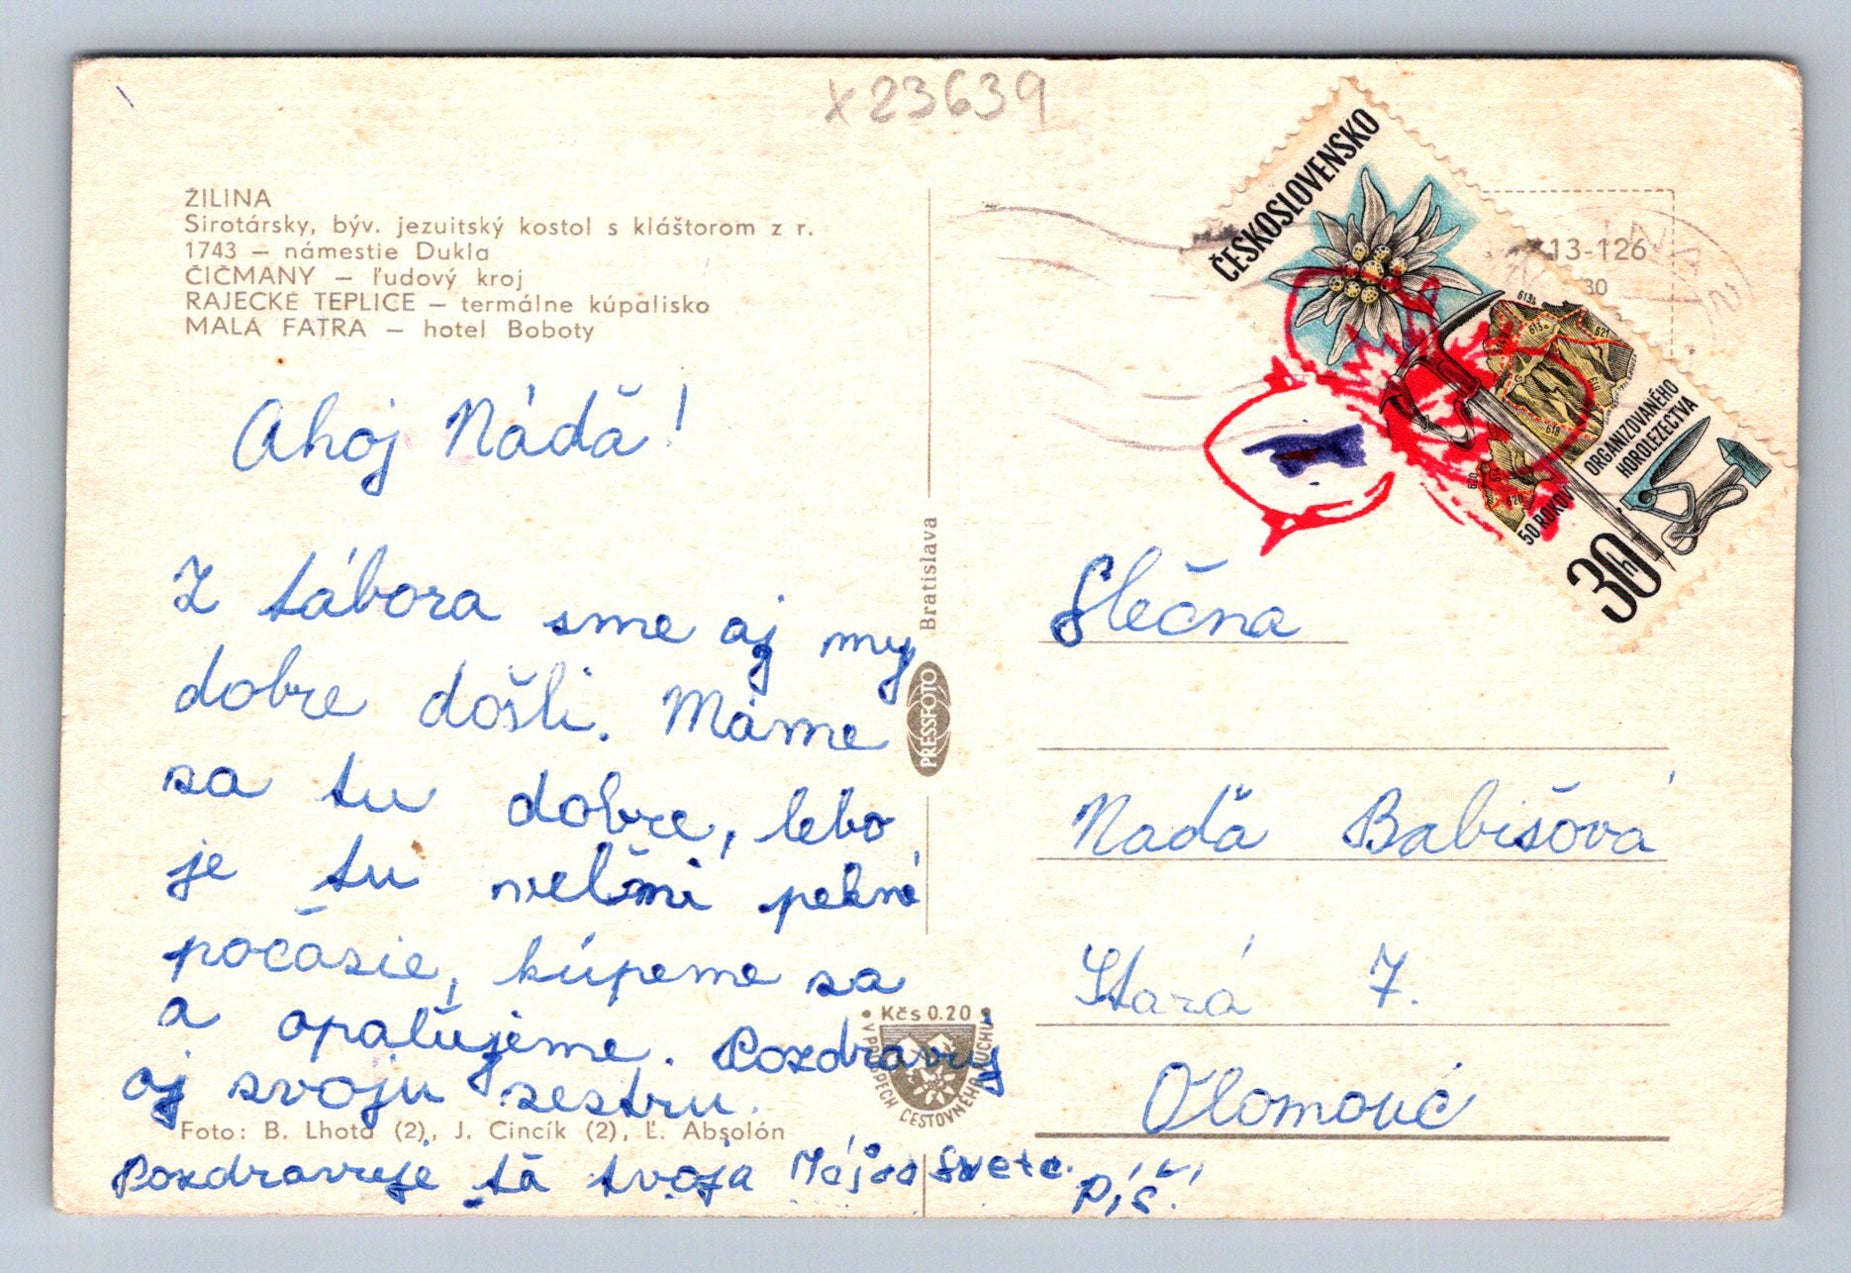 x23639
ŽILINA
Sirotársky, býv. jezuitský kostol s kláštorom z r.
1743 — námestie Dukla
ČIČMANY — ľudový kroj
RAJECKÉ TEPLICE — termálne kúpalisko
MALÁ FATRA — hotel Boboty
Ahoj Nádă!
Z tábora sme aj my
dobre došli. Máme
sa tu dobre, lebo
je tu velmi pekné
počásie, kúpeme sa
a opaľujeme. Pozdravuj
aj svoju sestru.
Foto: B. Lhota (2), J. Cincík (2), Ľ. Absolón
Pozdravuje tă tvoja
Píš!
Bratislava
PRESSFOTO
Kčs 0.20
V PROSPECH CESTOVNÉHO RUCHU
ČESKOSLOVENSKO
50 ROKOV
ORGANIZOVANÉHO
HOROLEZECTVA
30h
13-126
30
Slečna
Nadă Babišová
Stará 7.
Olomouc